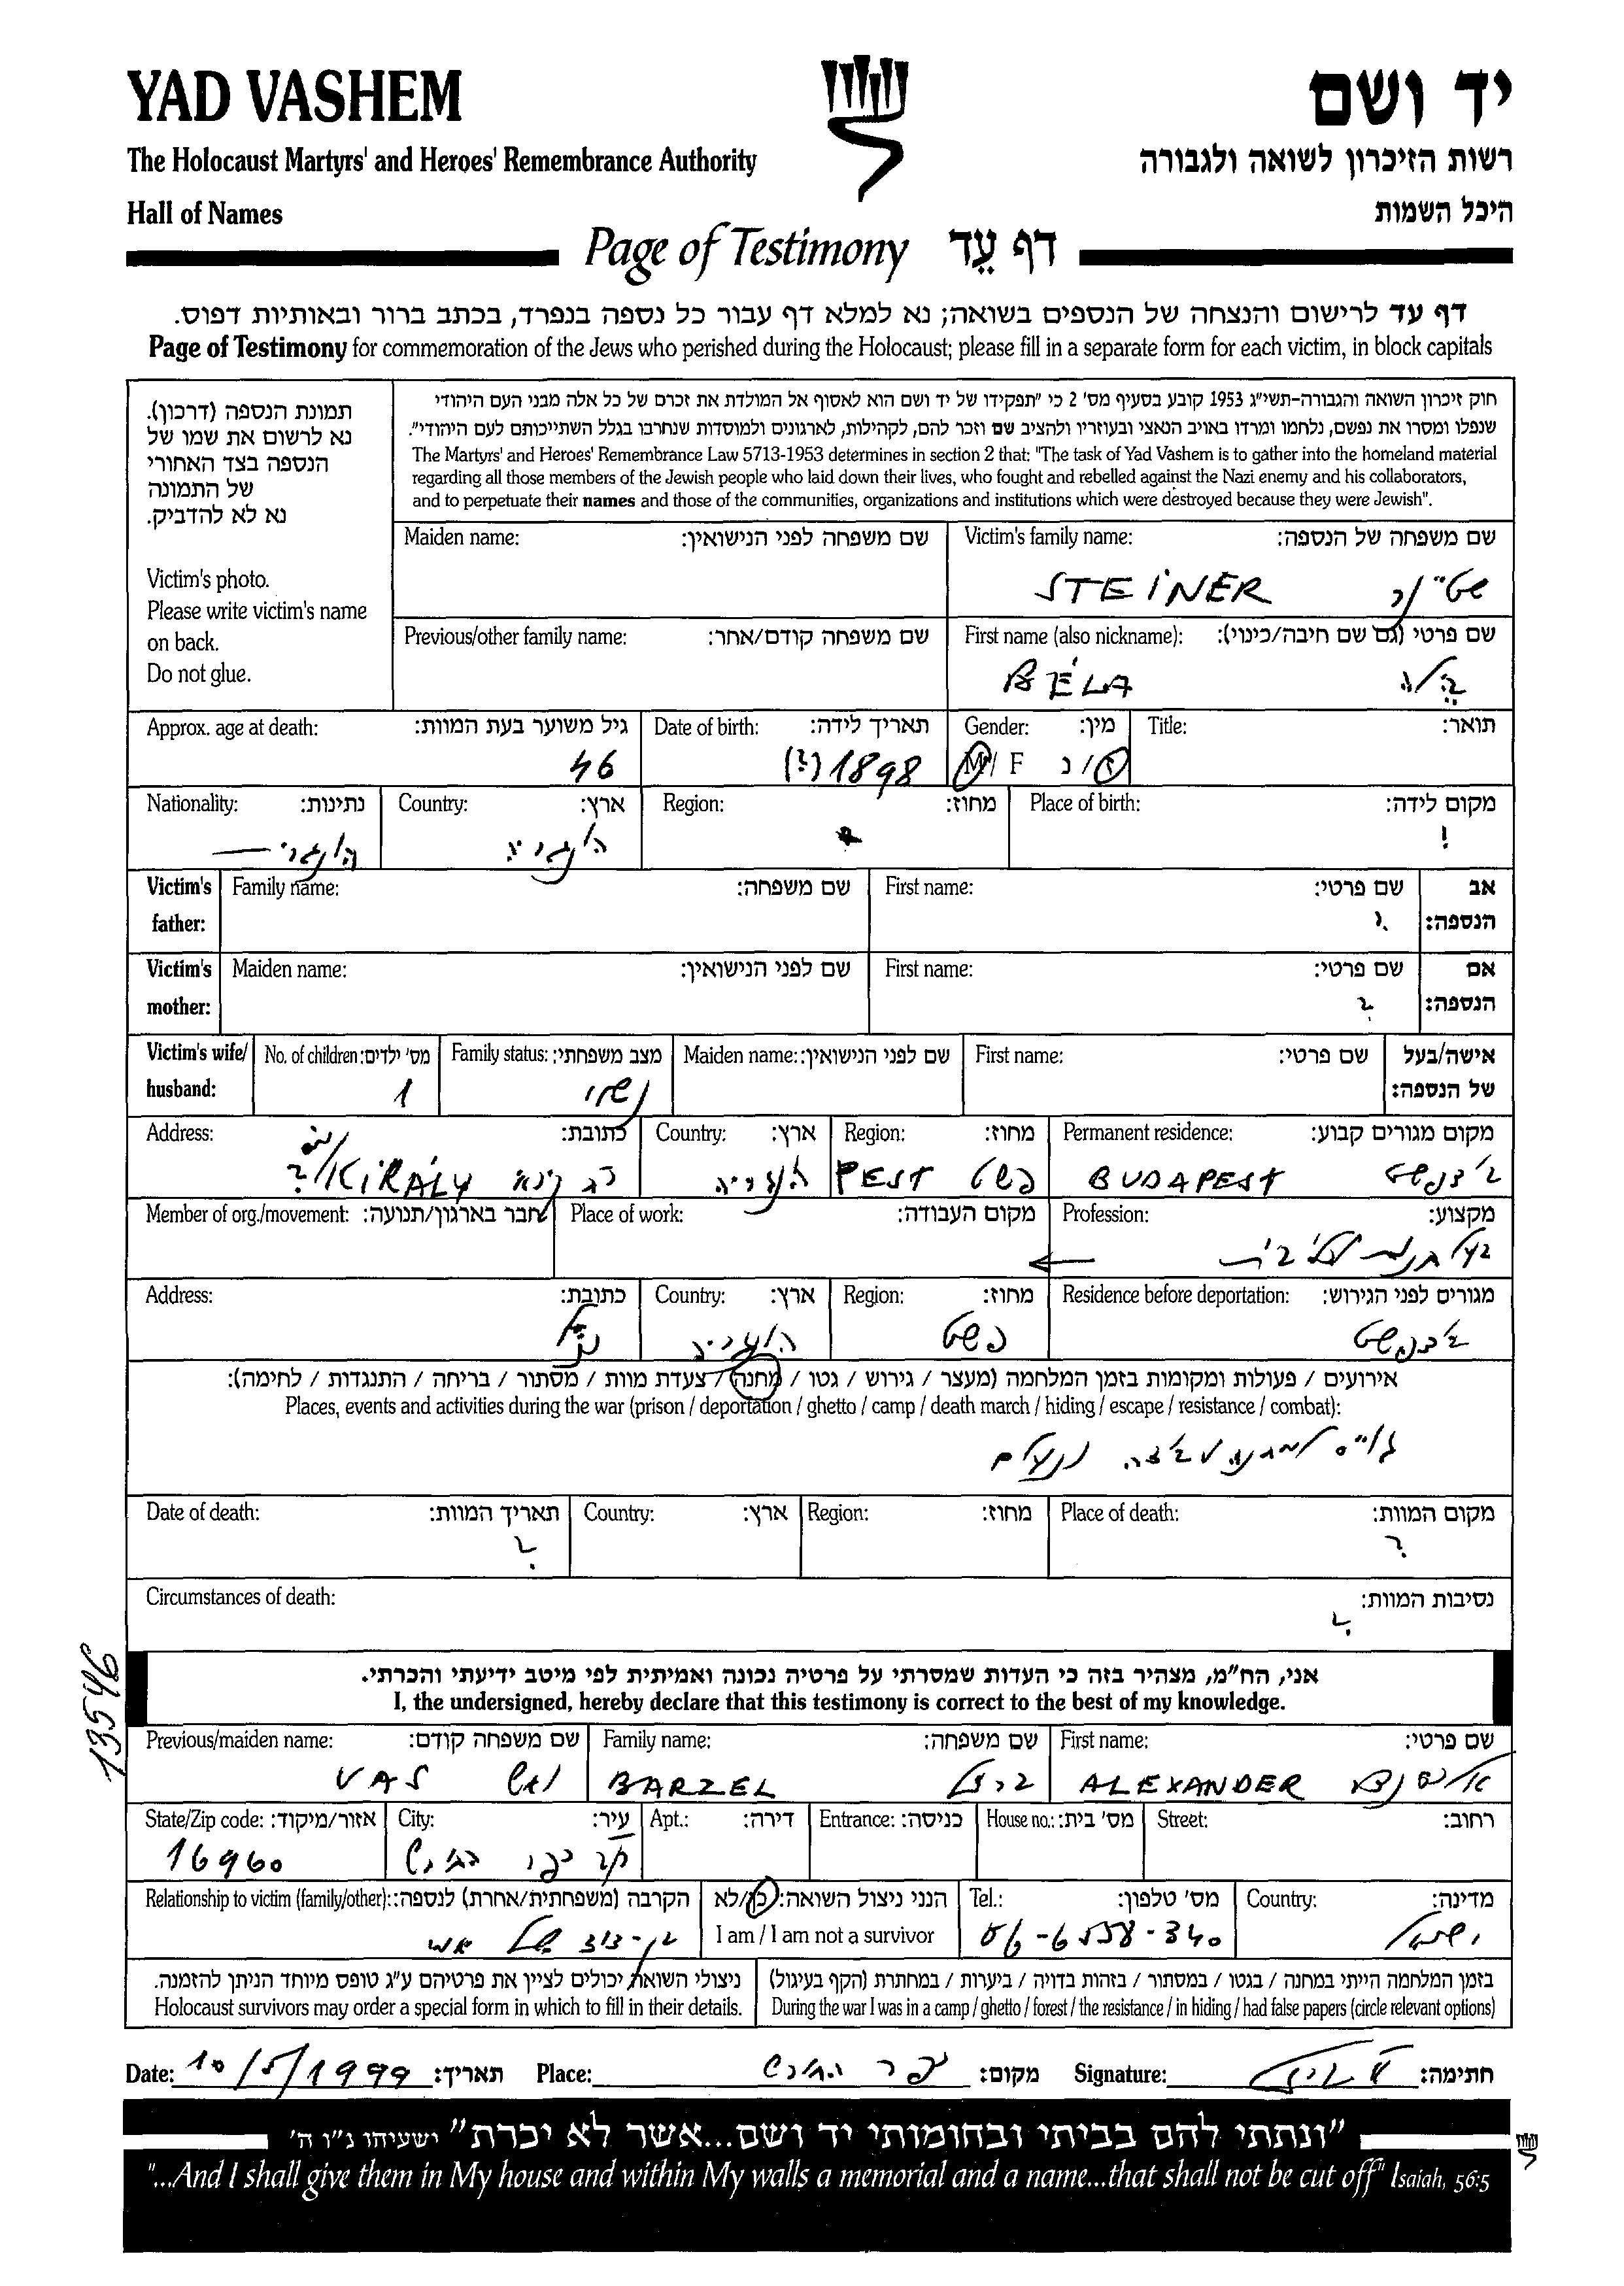 YAD VASHEM
יד ושם
The Holocaust Martyrs' and Heroes' Remembrance Authority
רשות הזיכרון לשואה ולגבורה
Hall of Names
היכל השמות
Page of Testimony דף עֵד
דף עד לרישום והנצחה של הנספים בשואה; נא למלא דף עבור כל נספה בנפרד, בכתב ברור ובאותיות דפוס.
Page of Testimony for commemoration of the Jews who perished during the Holocaust; please fill in a separate form for each victim, in block capitals
תמונת הנספה (דרכון).
נא לרשום את שמו של
הנספה בצד האחורי
של התמונה
נא לא להדביק.
Victim's photo.
Please write victim's name
on back.
Do not glue.
חוק זיכרון השואה והגבורה-תשי"ג 1953 קובע בסעיף מס' 2 כי "תפקידו של יד ושם הוא לאסוף אל המולדת את זכרם של כל אלה מבני העם היהודי
שנפלו ומסרו את נפשם, נלחמו ומרדו באויב הנאצי ובעוזריו ולהציב שם וזכר להם, לקהילות, לארגונים ולמוסדות שנחרבו בגלל השתייכותם לעם היהודי".
The Martyrs' and Heroes' Remembrance Law 5713-1953 determines in section 2 that: "The task of Yad Vashem is to gather into the homeland material
regarding all those members of the Jewish people who laid down their lives, who fought and rebelled against the Nazi enemy and his collaborators,
and to perpetuate their names and those of the communities, organizations and institutions which were destroyed because they were Jewish".
Maiden name: שם משפחה לפני הנישואין: Victim's family name: שם משפחה של הנספה:
STEINER שטיינר
Previous/other family name: שם משפחה קודם/אחר: First name (also nickname): שם פרטי (גם שם חיבה/כינוי):
BÉLA בלה
Approx. age at death: גיל משוער בעת המוות: Date of birth: תאריך לידה: Gender: מין: Title: תואר:
46 1898 (?) M / F ז / נ
Nationality: נתינות: Country: ארץ: Region: מחוז: Place of birth: מקום לידה:
הונגרי הונגריה ?
Victim's father: Family name: שם משפחה: First name: שם פרטי: אב הנספה:
?
Victim's mother: Maiden name: שם לפני הנישואין: First name: שם פרטי: אם הנספה:
?
Victim's wife/ husband: No. of children: מס' ילדים: Family status: מצב משפחתי: Maiden name: שם לפני הנישואין: First name: שם פרטי: אישה/בעל של הנספה:
1 נשוי
Address: כתובת: Country: ארץ: Region: מחוז: Permanent residence: מקום מגורים קבוע:
KIRÁLY ? הונגריה PEST פשט BUDAPEST בודפשט
Member of org./movement: חבר בארגון/תנועה: Place of work: מקום העבודה: Profession: מקצוע:
בעל חנות
Address: כתובת: Country: ארץ: Region: מחוז: Residence before deportation: מגורים לפני הגירוש:
הונגריה פשט בודפשט
אירועים / פעולות ומקומות בזמן המלחמה (מעצר / גירוש / גטו / מחנה / צעדת מוות / מסתור / בריחה / התנגדות / לחימה):
Places, events and activities during the war (prison / deportation / ghetto / camp / death march / hiding / escape / resistance / combat):
גוייס למחנה עבודה ונעלם
Date of death: תאריך המוות: Country: ארץ: Region: מחוז: Place of death: מקום המוות:
? ?
Circumstances of death: נסיבות המוות:
?
13546
אני, הח"מ, מצהיר בזה כי העדות שמסרתי על פרטיה נכונה ואמיתית לפי מיטב ידיעתי והכרתי.
I, the undersigned, hereby declare that this testimony is correct to the best of my knowledge.
Previous/maiden name: שם משפחה קודם: Family name: שם משפחה: First name: שם פרטי:
VAS ואש BARZEL ברזל ALEXANDER אלכסנדר
State/Zip code: אזור/מיקוד: City: עיר: Apt.: דירה: Entrance: כניסה: House no.: מס' בית: Street: רחוב:
16960 כפר החורש
Relationship to victim (family/other): הקרבה (משפחתית/אחרת) לנספה: הנני ניצול השואה: כן/לא Tel.: מס' טלפון: Country: מדינה:
I am / I am not a survivor
בן-דוד של אמי 06-6558-340 ישראל
ניצולי השואה יכולים לציין את פרטיהם ע"ג טופס מיוחד הניתן להזמנה. בזמן המלחמה הייתי במחנה / בגטו / במסתור / בזהות בדויה / ביערות / במחתרת (הקף בעיגול)
Holocaust survivors may order a special form in which to fill in their details. During the war I was in a camp / ghetto / forest / the resistance / in hiding / had false papers (circle relevant options)
Date: 10/5/1999 תאריך: Place: כפר החורש מקום: Signature: חתימה:
"ונתתי להם בביתי ובחומותי יד ושם...אשר לא יכרת" ישעיהו נ"ו ה'
"...And I shall give them in My house and within My walls a memorial and a name...that shall not be cut off" Isaiah, 56:5